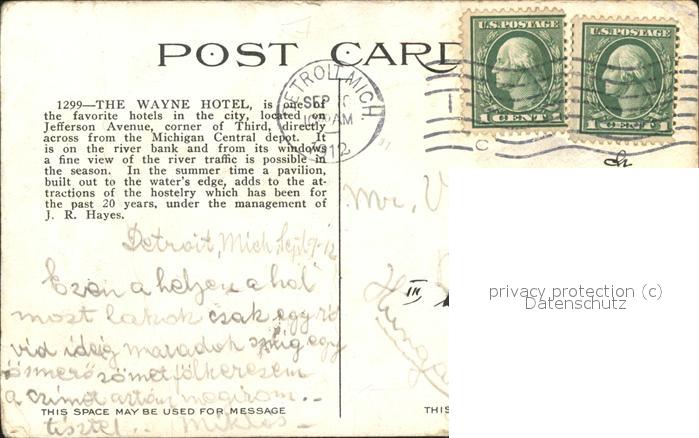 POST CARD
U.S. POSTAGE
1 CENT 1
U.S. POSTAGE
1 CENT 1
DETROIT, MICH
SEP
10 AM
1912
C
1299—THE WAYNE HOTEL, is one of
the favorite hotels in the city, located on
Jefferson Avenue, corner of Third, directly
across from the Michigan Central depot. It
is on the river bank and from its windows
a fine view of the river traffic is possible in
the season. In the summer time a pavilion,
built out to the water's edge, adds to the at-
tractions of the hostelry which has been for
the past 20 years, under the management of
J. R. Hayes.
Detroit, Mich, Sept 9-12
Ezen a helyen a hol
most lakok csak egy rö
vid ideig maradok míg egy
ösmerősömet fölkeresem
a czímet aztán megirom..
tisztel.. Miklos
THIS SPACE MAY BE USED FOR MESSAGE
Mr. V
Hunga
THIS
privacy protection (c)
Datenschutz